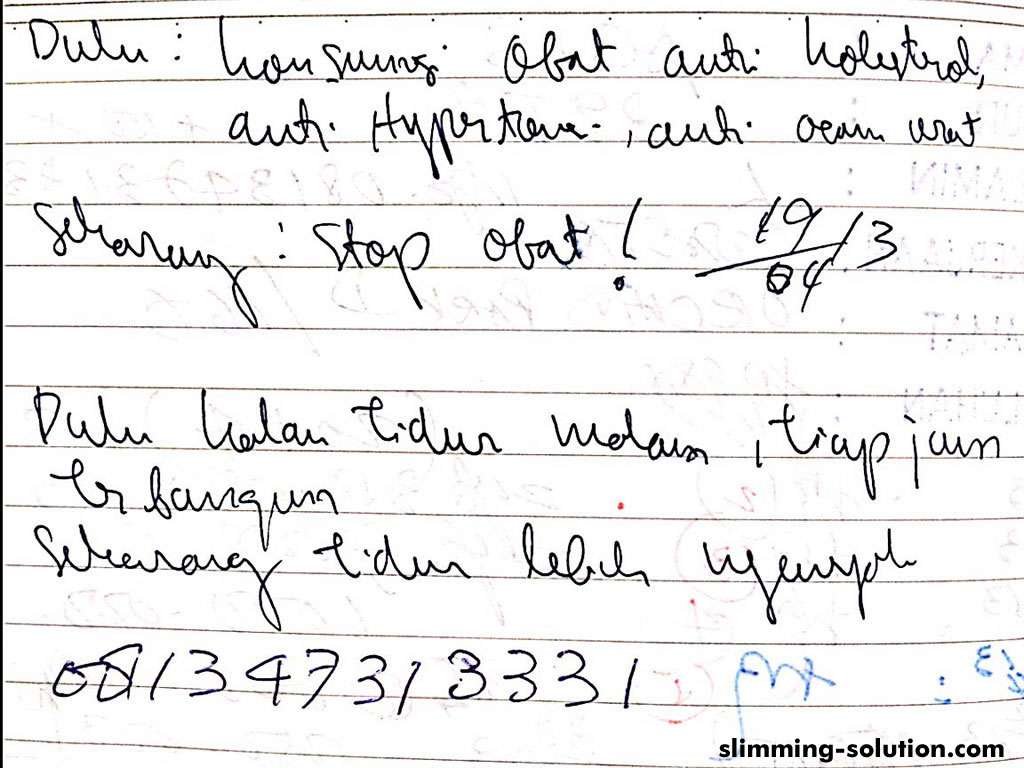 Dulu : konsumsi Obat anti kolesterol,
anti Hypertensi , anti asam urat
Sekarang : Stop obat ! 19/04/13
Dulu kalau tidur malam , tiap jam
terbangun
Sekarang tidur lebih nyenyak
081347313331
slimming-solution.com